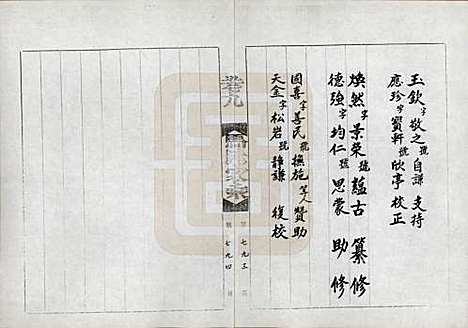 玉欽字敬之號自謙 支持
應珍字賓軒號欣亭 校正
煥然字景榮號蘊古 纂修
德強字均仁號思蒙 助修
國喜字善民號撫施等人 贊助
天金字松岩號雒謙 復校
卷九
七九三
七九四